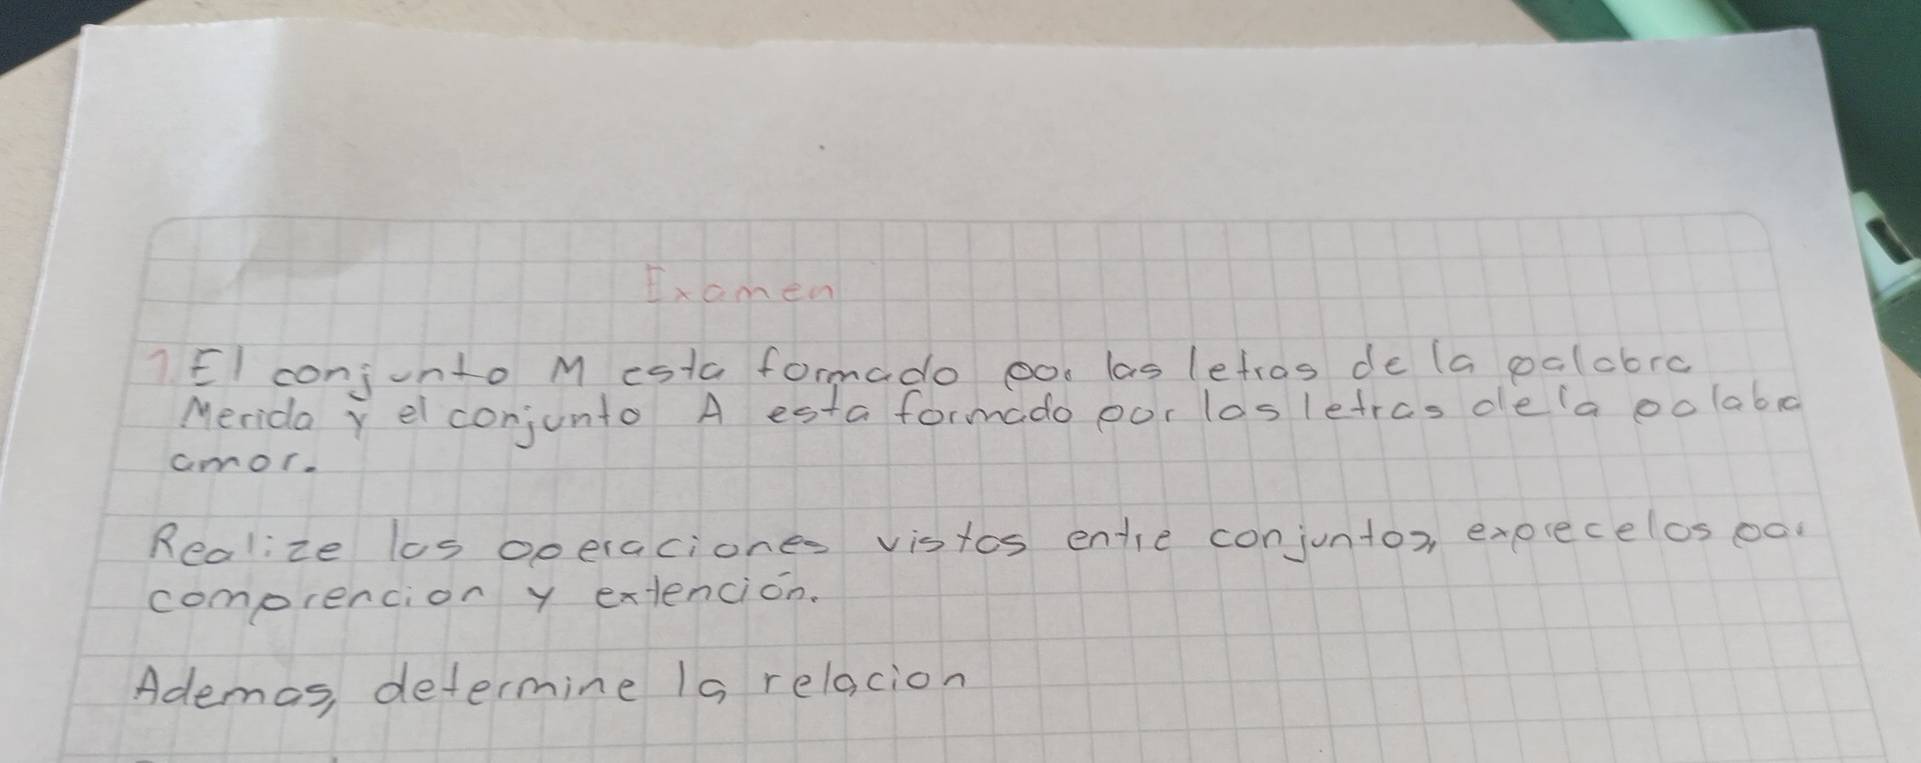 Examen
1. El conjunto M esta formado por las letras de la palabra
Merida y el conjunto A esta formado por las letras de la palabra
amor.
Realize las operaciones vistas entre conjuntos, exprecelos por
comprencion y extención.
Ademas, determine la relacion